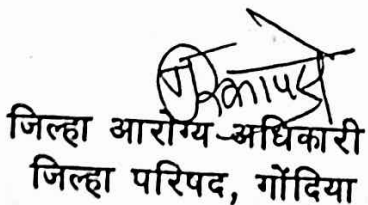 जिल्हा आरोग्य अधिकारी
जिल्हा परिषद, गोंदिया